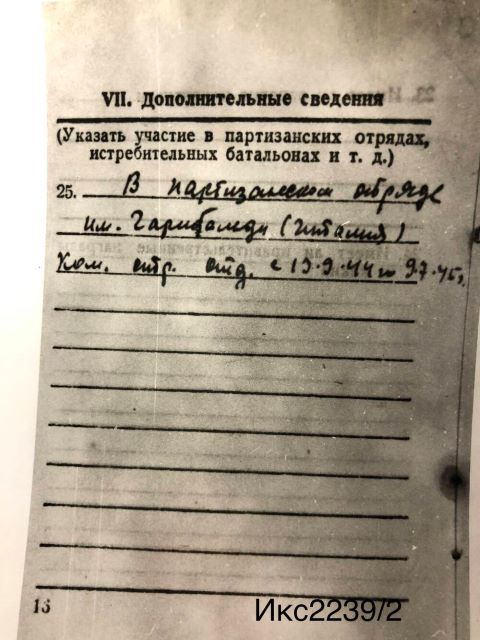 VII. Дополнительные сведения
(Указать участие в партизанских отрядах,
истребительных батальонах и т. д.)
25. В партизанском отряде
им. Гарибальди (Италия)
Ком. стр. отд. с 13.9.44 по 9.7.45г.
16
Икс2239/2